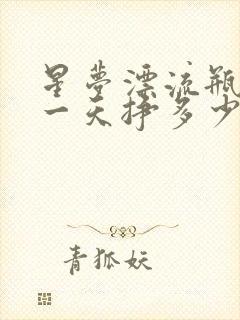 星梦漂流瓶
一天挣多少
青狐妖